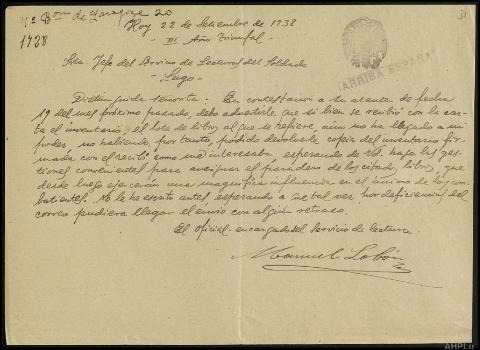 4º Bon de Zaragoza 20
1728
Hoy 22 de Setiembre de 1938
- III Año Triunfal -
31
¡ARRIBA ESPAÑA!
Sra Jefe del Servicio de Lecturas del Soldado
- Lugo -
Distinguida señorita: En contestación a su atenta de fecha
19 del mes próximo pasado, debo advertirle que si bien se recibió con la car-
ta el inventario, el lote de libros al que se refiere, aun no ha llegado a mi
poder, no habiendo, por tanto, podido devolverle copia del inventario fir-
mada con el recibí como me interesaba, esperando de Vd. haga las ges-
tiones convenientes para averiguar el paradero de los citados libros, que
desde luego ejercerán una magnífica influencia en el ánimo de los com-
batientes. No le he escrito antes, esperando a que tal vez por deficiencias del
correo pudiera llegar el envío con algún retraso.
El Oficial encargado del servicio de lectura.
Manuel Lobón
AHPLu